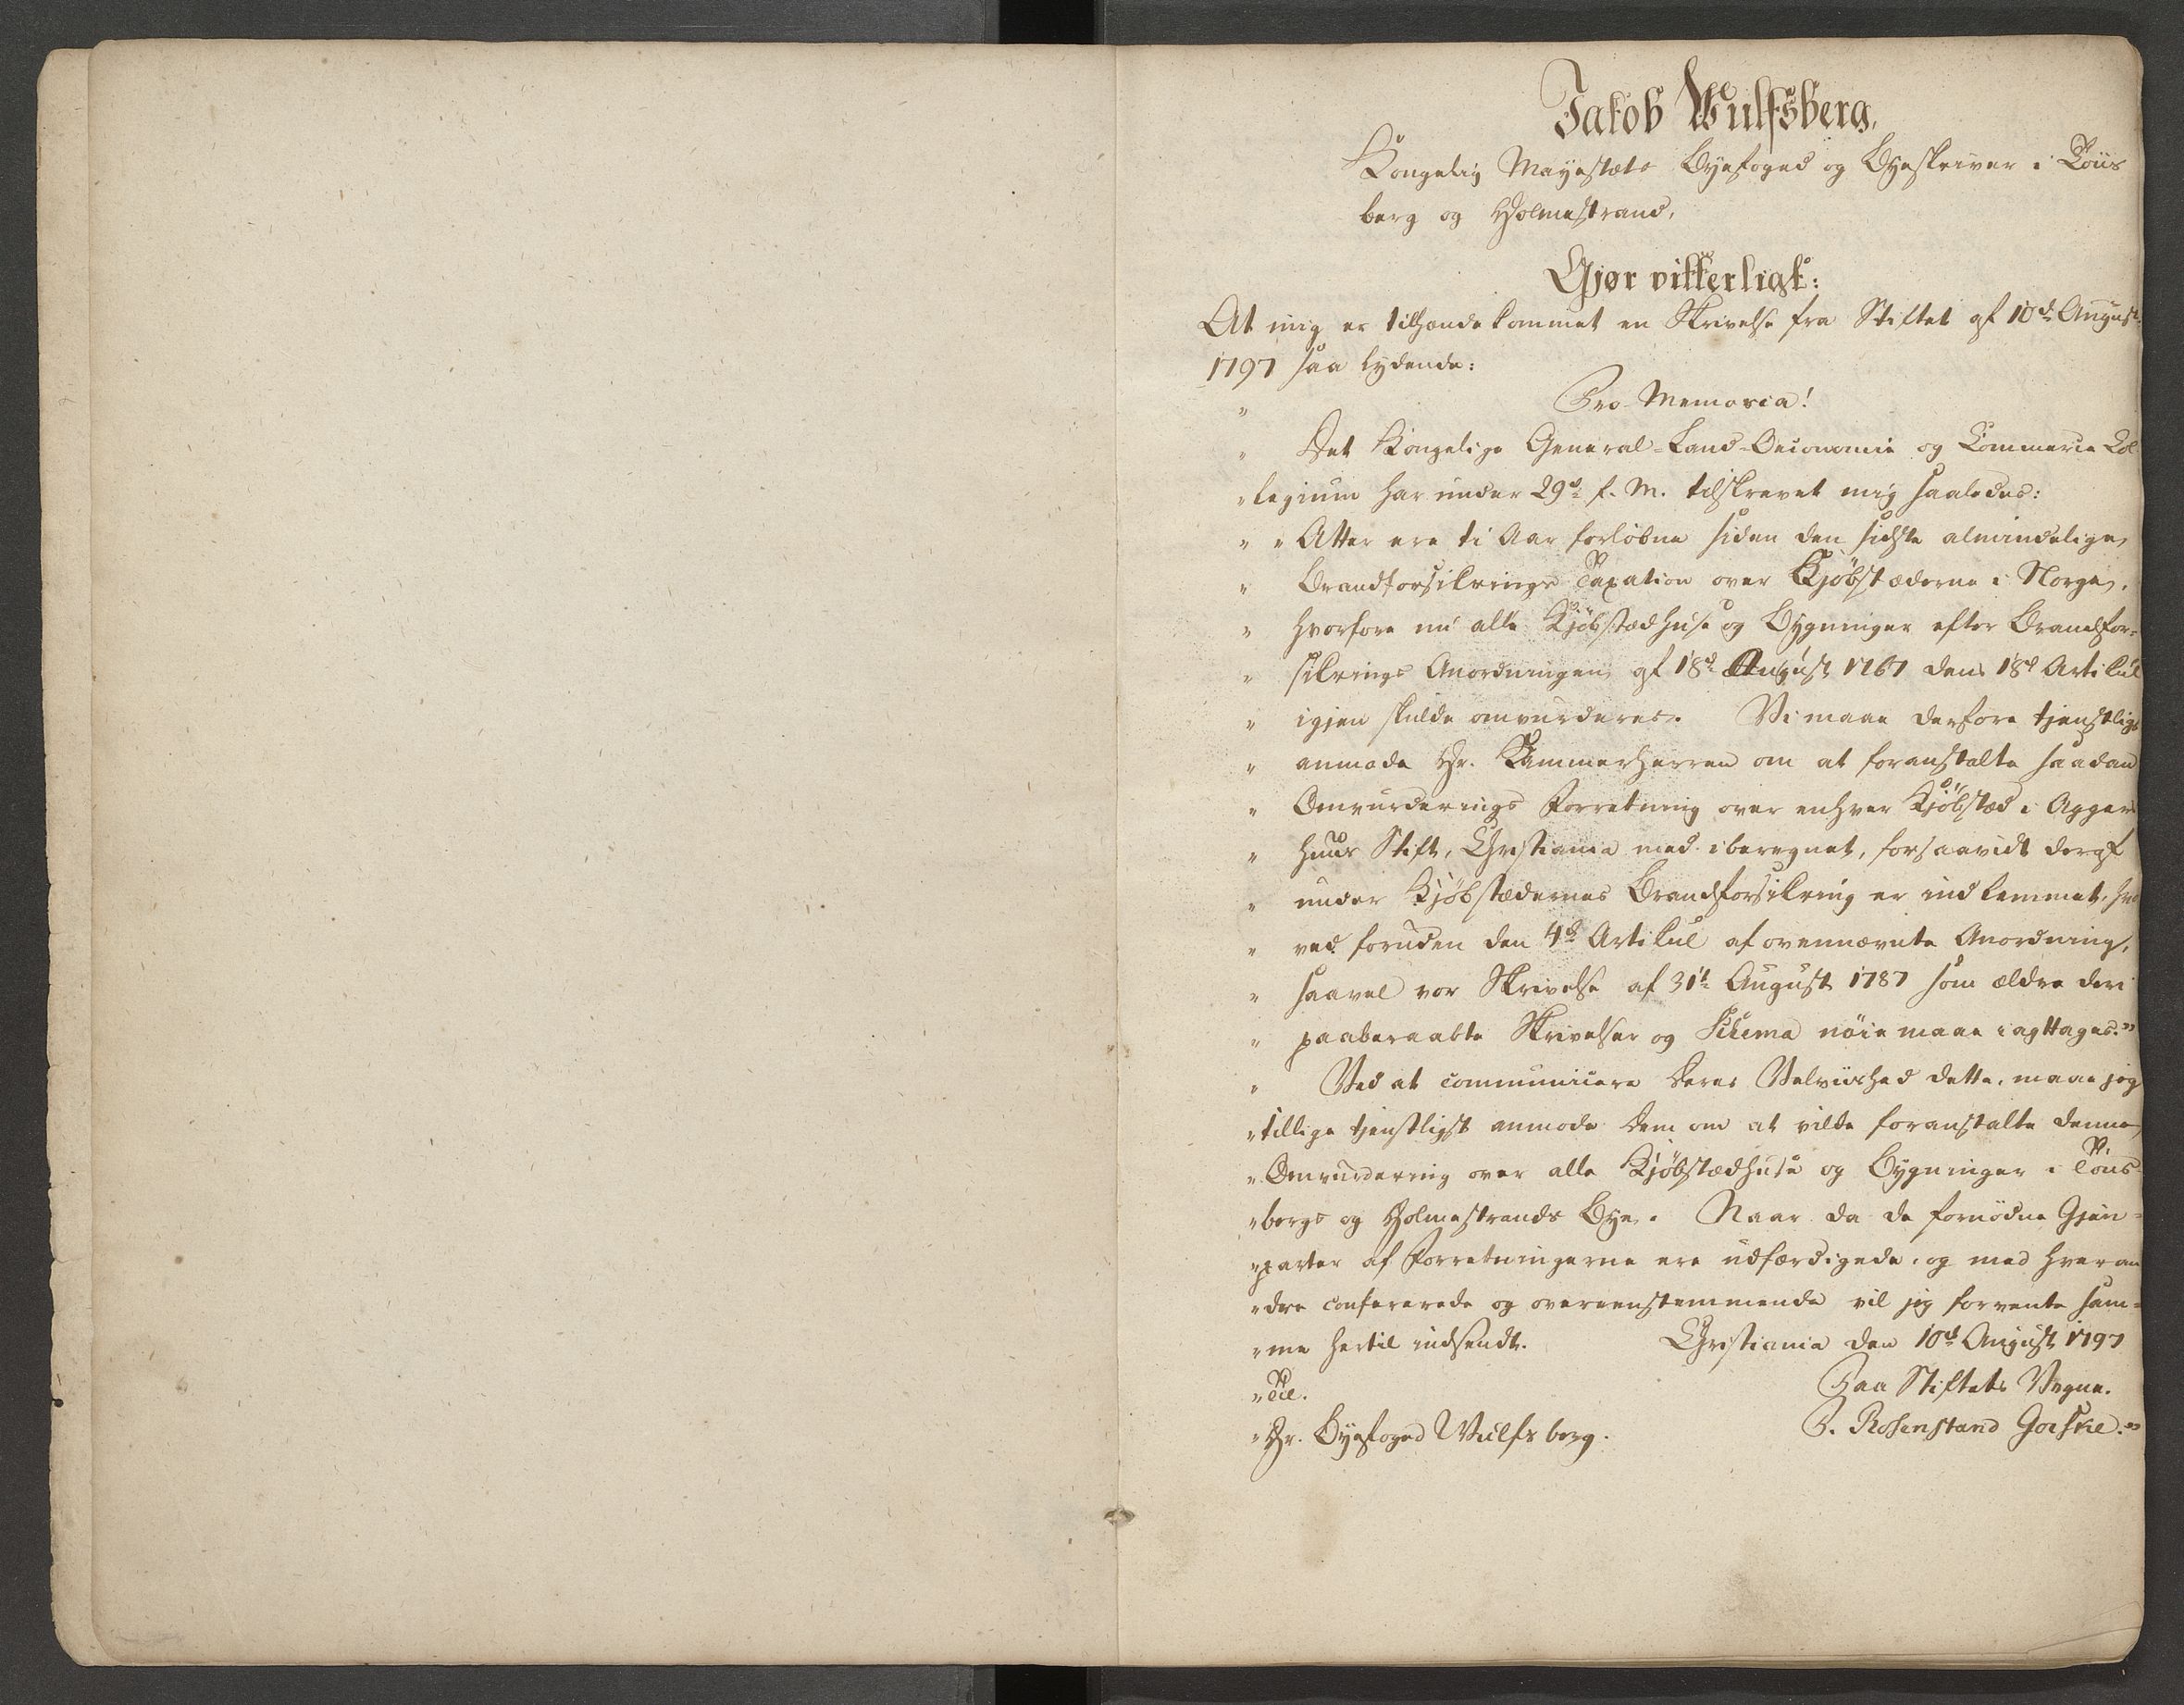 Jakob Wulfsberg,
Kongelig Mayestæts Byefoged og Byeskriver i Töns
berg og Holmestrand,
Gjør vitterligt:
At mig er tilhænde kommet en Skrivelse fra Stiftet af 10d August
1797 saa lydende:
" Pro Memoria!
" Det Kongelige General-Land-Oeconomie og Commerce Col
" legium har under 29d f. M. tilskrevet mig saaledes:
" " Atter ere ti Aar forløbne siden den sidste almindelige
" Brandforsikrings Taxation over Kjöbstæderne i Norge,
" hvorfore nu alle Kjöbstædhuse og Bygninger efter Brandfor-
" sikrings Anordningen af 18d August 1767 dens 18d Artikul
" igjen skulde omvurderes. Vi maae derfore tjenstligst
" anmode Hr. Kammerherren om at foranstalte saadan
" Omvurderings Forretning over enhver Kjöbstæd i Agger
" huus Stift, Christiania med iberegnet, forsaavidt deraf
" under Kjöbstædernes Brandforsikring er indlemmet, hvor
" ved foruden den 4d Artikul af ovennævnte Anordning,
" saavel vor Skrivelse af 31t August 1787 som ældre deri
" paaberaabte Skrivelser og Schema nöie maae iagttages."
" Ved at communicere Deres Velviished dette, maae jeg
" tillige tjenstligst anmode Dem om at vilde foranstalte denne
" Omvurdering over alle Kjöbstædhuse og Bygninger i Töns-
" bergs og Holmestrands Bye. Naar da de fornödne Gjen-
" parter af Forretningerne ere udfærdigede, og med hveran
" dre confererede og overeenstemmende vil jeg forvente sam-
" me hertil indsendt. Christiania den 10d August 1797
" Til. Paa Stiftets Vegne.
" Hr. Byefoged Wulfsberg. P. Rosenstand Goiske."